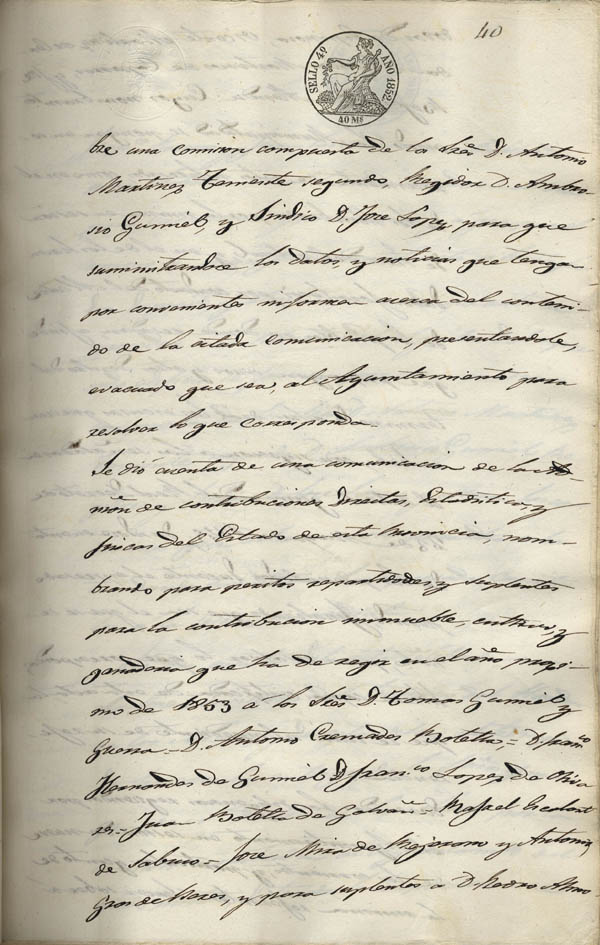 40
SELLO 4º AÑO 1852
40 Ms
bre una Comision compuesta de los Sres D. Antonio
Martinez Teniente segundo, Regidor D. Ambro-
sio Gumiel, y Sindico D. Jose Lopez para que
suministrandose los datos, y noticias que tengan
por convenientes informen acerca del conteni-
do de la citada comunicacion, presentandole,
evacuado que sea, al Ayuntamiento para
resolver lo que corresponda.
Se dió cuenta de una comunicacion de la Ad-
mon de contribuciones Directas, Estadistica, y
fincas del Estado de esta Provincia, nom-
brando para peritos repartidores, y suplentes
para la contribucion inmueble, cultivo, y
ganaderia que ha de regir en el año proxi-
mo de 1853 a los Sres D. Tomas Gumiel y
Guerra = D. Antonio Cremades Botella = D. Franco
Hernandes de Gumiel D. Franco Lopez de Oliva
res = Juan Botella de Galvañ = Rafael Escolant
de Sabuco = Jose Mira de Mojorono y Antonio
Gros de Borex, y para suplentes a D. Pedro